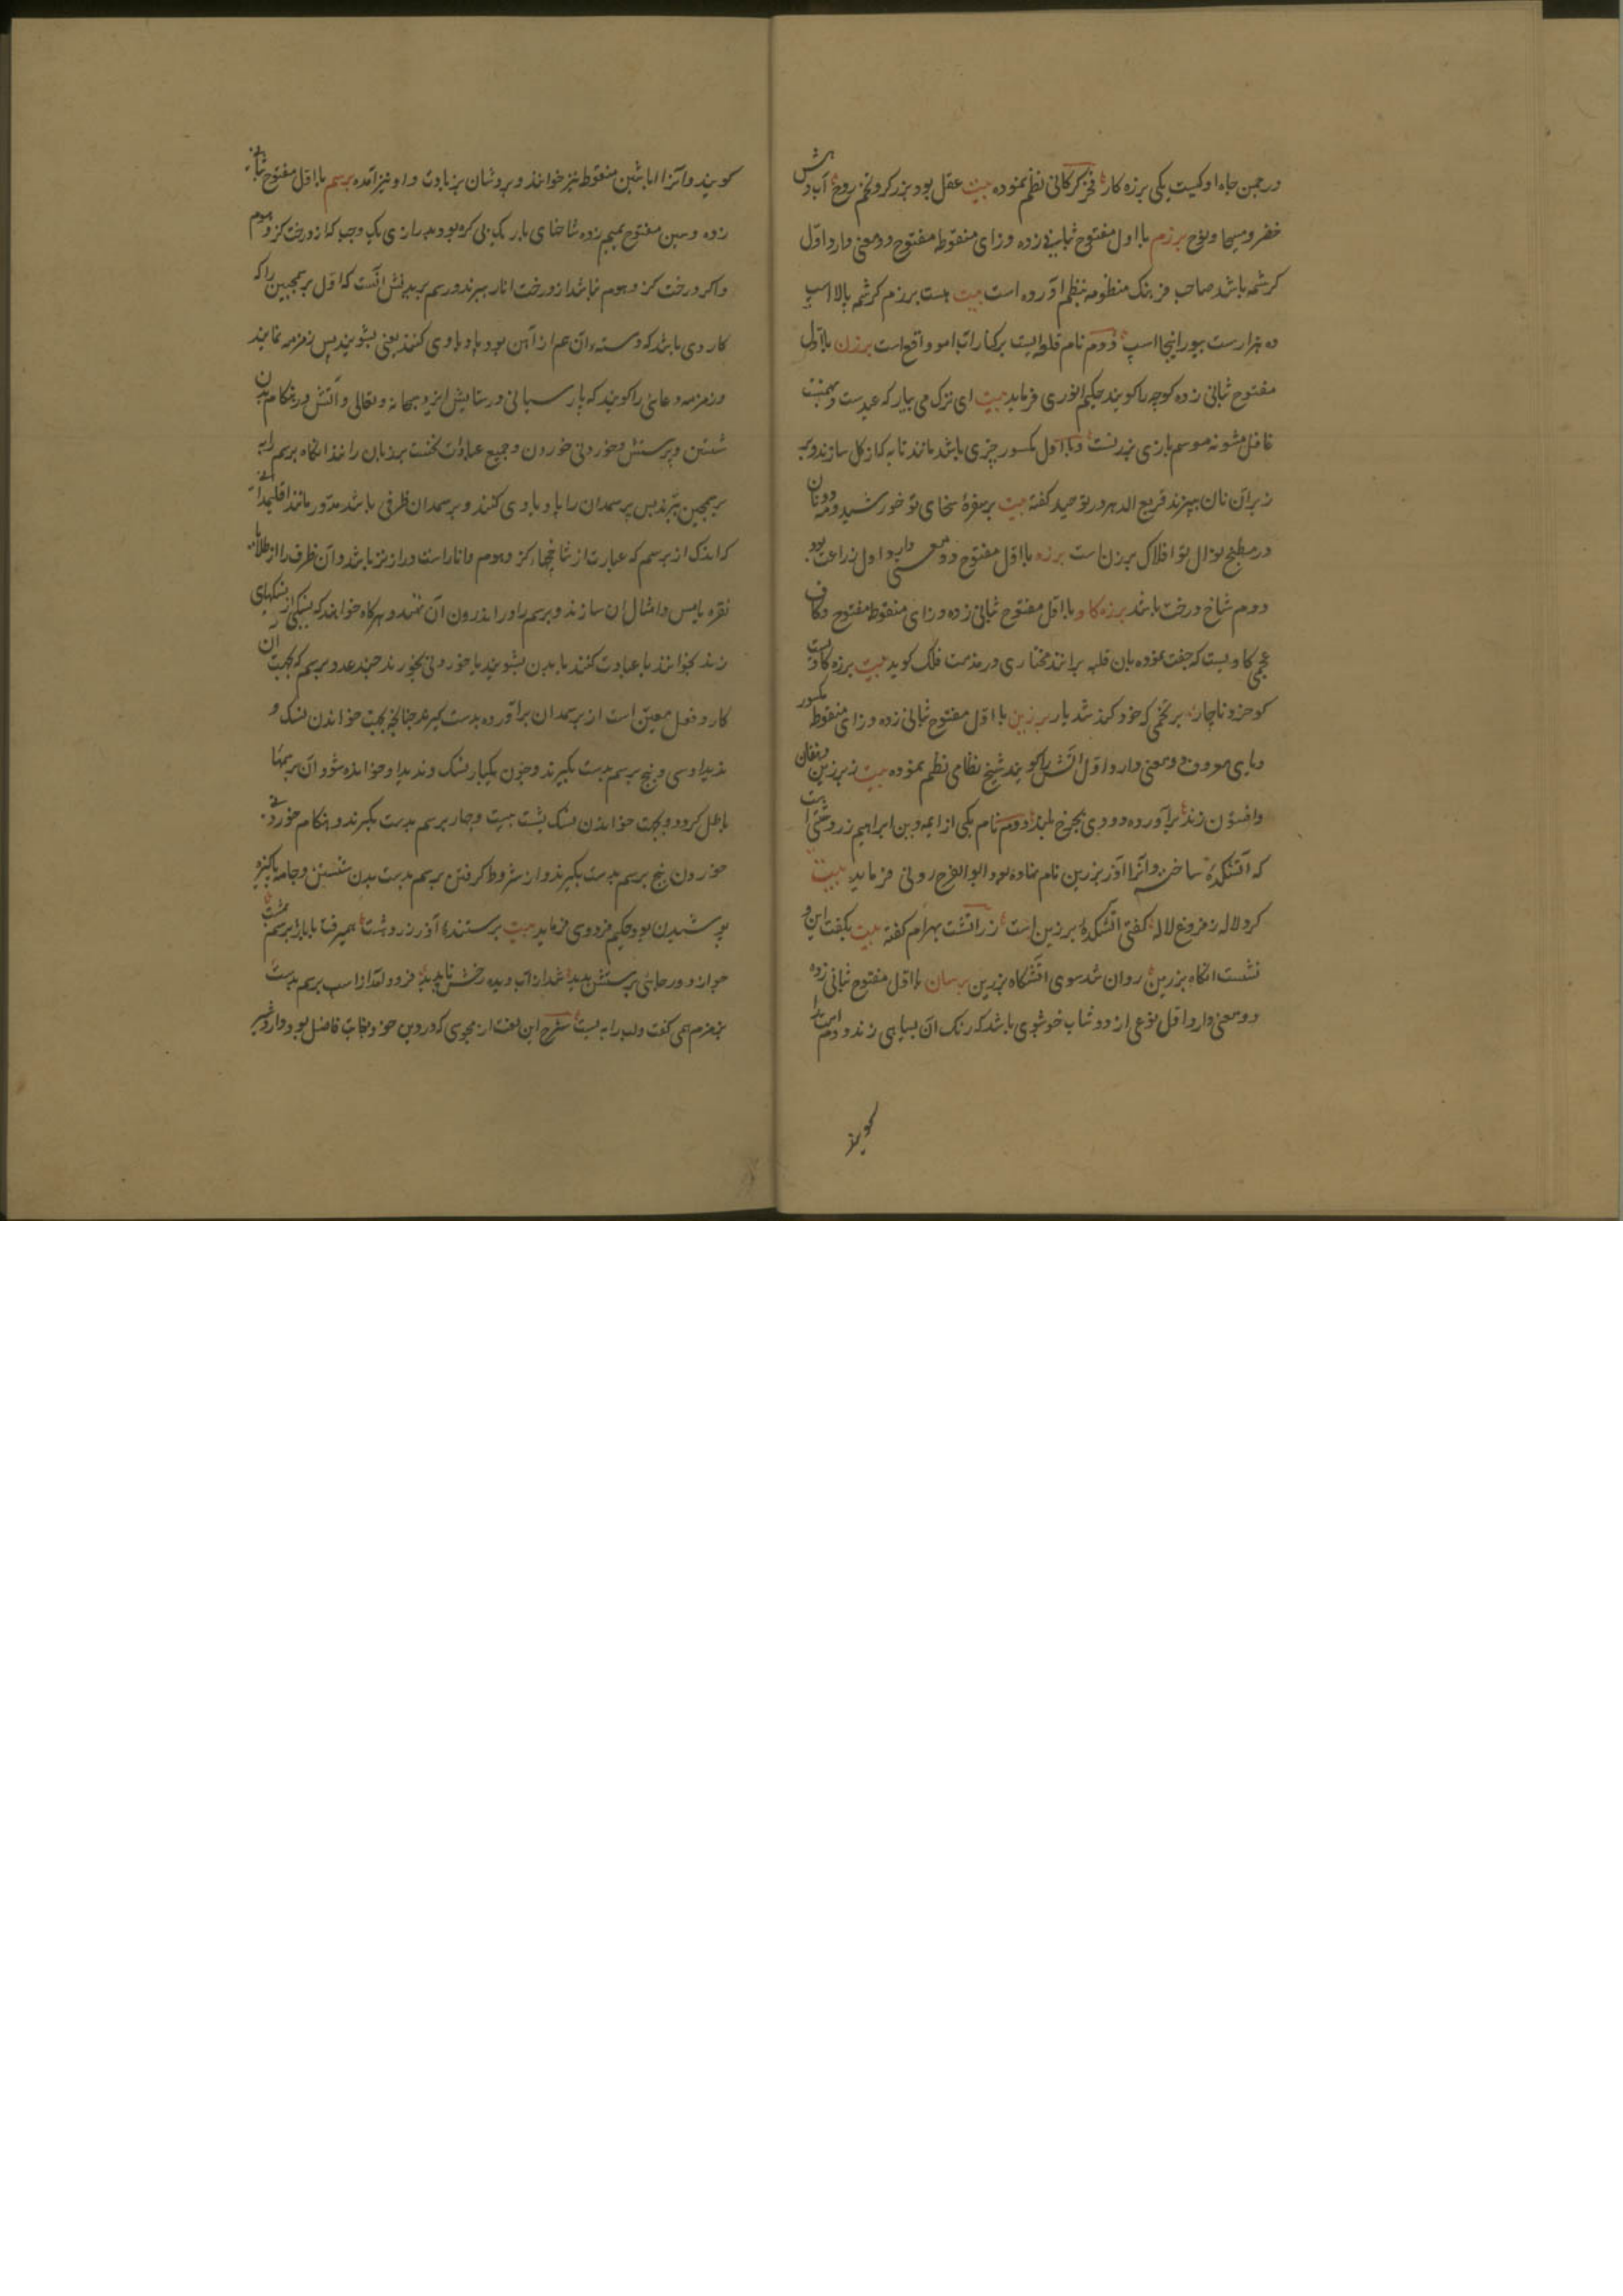 در چمن جاه او کیست یکی برزه کار فخر کرکانی نظم نموده بیت عقل بود برزکر و تخم روح آب دهش
خضر و مسیحا و نوح برزم با اول مفتوح بثانی زده و زای منقوطه مفتوح دو معنی دارد اول
کرشمه باشد صاحب فرهنک منظومه بنظم آورده است بیت هست برزم کرشمه بالا اسپ
ده هزارست بیور اینجا اسپ دوم نام قلعه ایست بر کنار آب امو واقع است برزن با اول
مفتوح بثانی زده کوچه را کویند حکیم انوری فرماید بیت ای ترک می بیار که عیدست و بهمنست
غافل مشو نه موسم بازی برزنست و با اول مکسور چیزی باشد مانند تابه که از کل سازند و بر
زبر آن نان بپزند قریع الدهر در توحید کفته بیت بر سفرهٔ سخای تو خورشید و مه دو نان
در مطبخ نوال تو افلاک برزن است برزه با اول مفتوح دو معنی دارد اول زراعت بود
دوم شاخ درخت باشد برزه کاو با اول مفتوح بثانی زده و زای منقوطه مفتوح و کاف
عجمی کاویست که جفت نموده بان قلبه برانند مختاری در مذمت فلک کوید بیت برزه کاویست
کو خرد ناچار بر تخمی که خود کند شد یار برزین با اول مفتوح بثانی زده و زای منقوطه مکسور
و یای معروف دو معنی دارد اول آتش را کویند شیخ نظامی نظم نموده بیت ز برزین دهقان
و افسون زند برآورده دودی بچرخ بلند دوم نام یکی از ایمه دین ابراهیم زردشتی است
که آتشکدهٔ ساخته و آنرا آذر برزین نام نهاده بود ابوالفرج رونی فرماید بیت
کرد لاله ز فروغ لاله کفتی آتشکدهٔ برزین است زراتشت بهرام کفته بیت بکفت این و
نشست انکاه بر زین روان شد سوی آتشکاه برزین برسان با اول مفتوح بثانی زده
دو معنی دارد اول نوعی از دوشاب خوشبوی باشد که رنک آن بسیاهی زند و دوم امت را
کویند
کویند و آنرا با شین منقوطه نیز خوانند و بروشان بزیادت واو نیز آمده برسم با اول مفتوح بثانی
زده و سین مفتوح بمیم زده شاخهای باریک بی کره بود بدرازی یک وجب که از درخت کز و هوم
و اکر درخت کز و هوم نباشد از درخت انار ببرند و رسم بریدنش آنست که اول برسمچین را که
کاردی باشد که دسته آن هم از آهن بود پاو پاوی کنند یعنی بشویند پس زمزمه نمایند
و زمزمه دعایی را کویند که پارسیانی در ستایش ایزد سبحانه و تعالی و آتش در هنکام بدن
شستن و پرستش و خوردنی خوردن و جمیع عبادات نخست بر زبان رانند انکاه برسم را به
برسمچین ببرند پس برسمدان را پاو پاوی کنند و برسمدان ظرفی باشد مدور مانند اقلیمدانی
که اندک از برسم که عبارت از شاخچهاء کز و هوم و انار است درازتر باشد و آن ظرف را از طلا یا
نقره یا مس و امثال آن سازند و برسم را در اندرون آن نهند و هرکاه خواهند که نسکی از نسکهای
زند بخوانند یا عبادت کنند یا بدن بشویند یا خوردنی بخورند چند عدد برسم که بجهت آن
کار و فعل معین است از برسمدان برآورده بدست کیرند چنانچه بجهت خواندن نسک و
ندیداد سی و پنج برسم بدست بکیرند و چون یکبار نسک وندیداد خوانده شود آن برسمها
باطل کردد و بجهت خواندن نسک یشت بیست و چهار برسم بدست بکیرند و هنکام خوردنی
خوردن پنج برسم بدست بکیرند و از شروط کرفتن برسم بدست بدن شستن و جامه پاکیزه
پوشیدن بود حکیم فردوسی فرماید بیت پرستنده آذر زردهشت همیرفت با باژ و برسم بمشت
چو از دور جای پرستش بدید شد از آب دیده رخش ناپدید فرود آمد از اسپ برسم بدست
بزمزم همی کفت و لب را ببست شرح این لغت از مجوسی که در دین خود بغایت فاضل بود و اردشیر